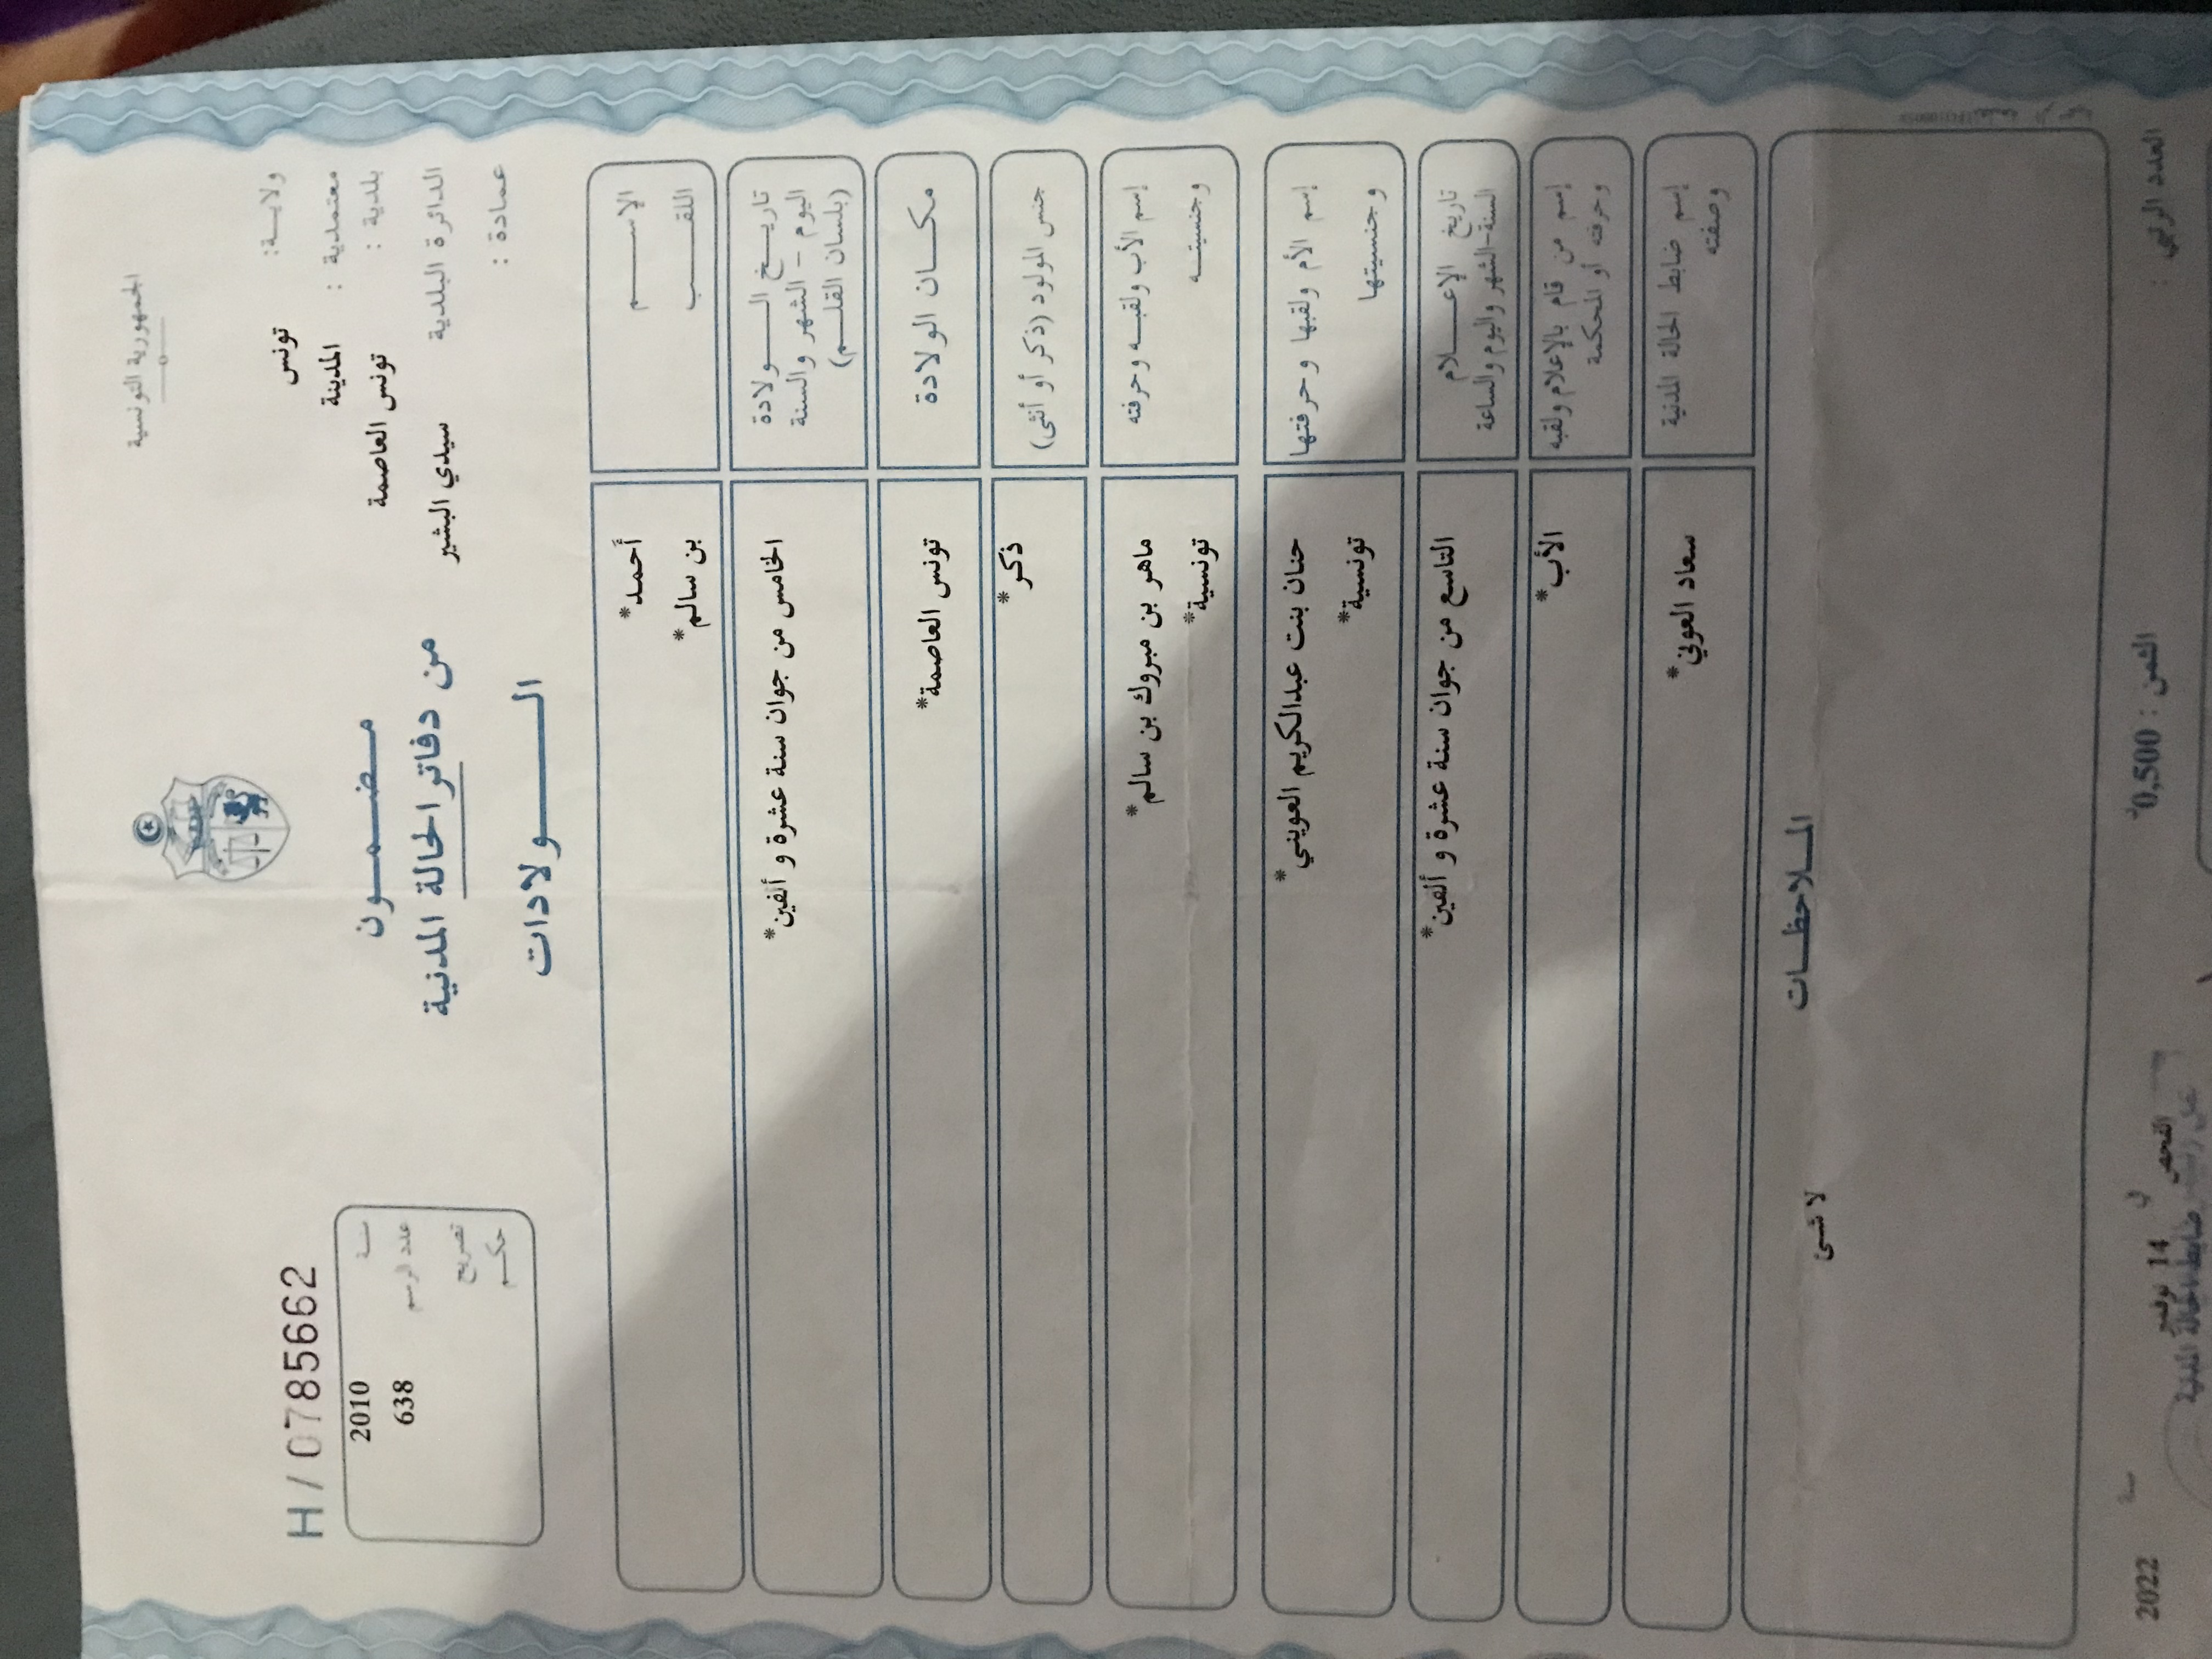 الجمهورية التونسية
ولايـــة: تونس
معتمدية : المدينة
بلدية : تونس العاصمة
الدائرة البلدية سيدي البشير
عمادة :
H/0785662
سنة 2010
عدد الرسم 638
تصريح
حكم
مضـمـون
من دفاتر الحالة المدنية
الـــولادات
الإســـم أحمد*
اللقـــب بن سالم*
تاريـــخ الـــولادة
اليوم - الشهر والسنة
(بلسان القلـــم)
الخامس من جوان سنة عشرة و ألفين*
مكـــان الولادة تونس العاصمة*
جنس المولود (ذكر أو أنثى) ذكر*
إسم الأب ولقبـه وحرفته ماهر بن مبروك بن سالم*
وجنسيتـــه تونسية*
إسم الأم ولقبها وحرفتها حنان بنت عبدالكريم العويني*
وجنسيتها تونسية*
تاريخ الإعـــلام
السنة-الشهر واليوم والساعة
التاسع من جوان سنة عشرة و ألفين*
إسم من قام بالإعلام ولقبه
وحرفته أو المحكمة
الأب*
إسم ضابط الحالة المدنية
وصفته
سعاد العوني*
المـلاحظـــات
لا شئ
العدد الرتبي :
الثمن : 0,500
الفحص في 14 نوفمبر سنة 2022
ضابط الحالة المدنية